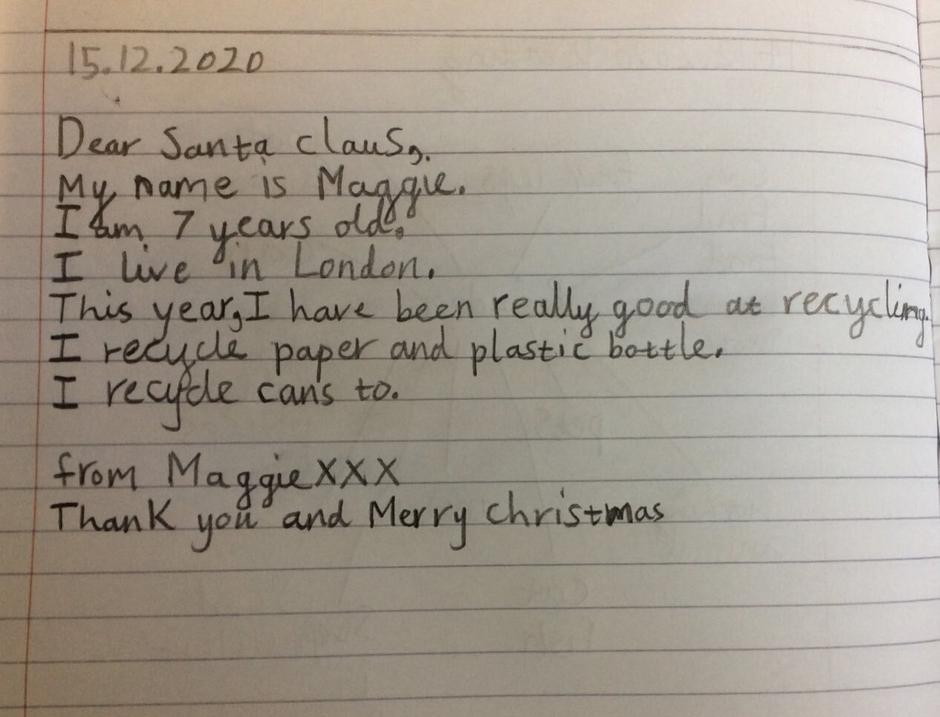 15.12.2020
Dear Santa claus,.
My name is Maggie.
I am 7 years old.
I live in London.
This year, I have been really good at recycling.
I recycle paper and plastic bottle.
I recycle cans to.
from Maggie XXX
Thank you and Merry christmas